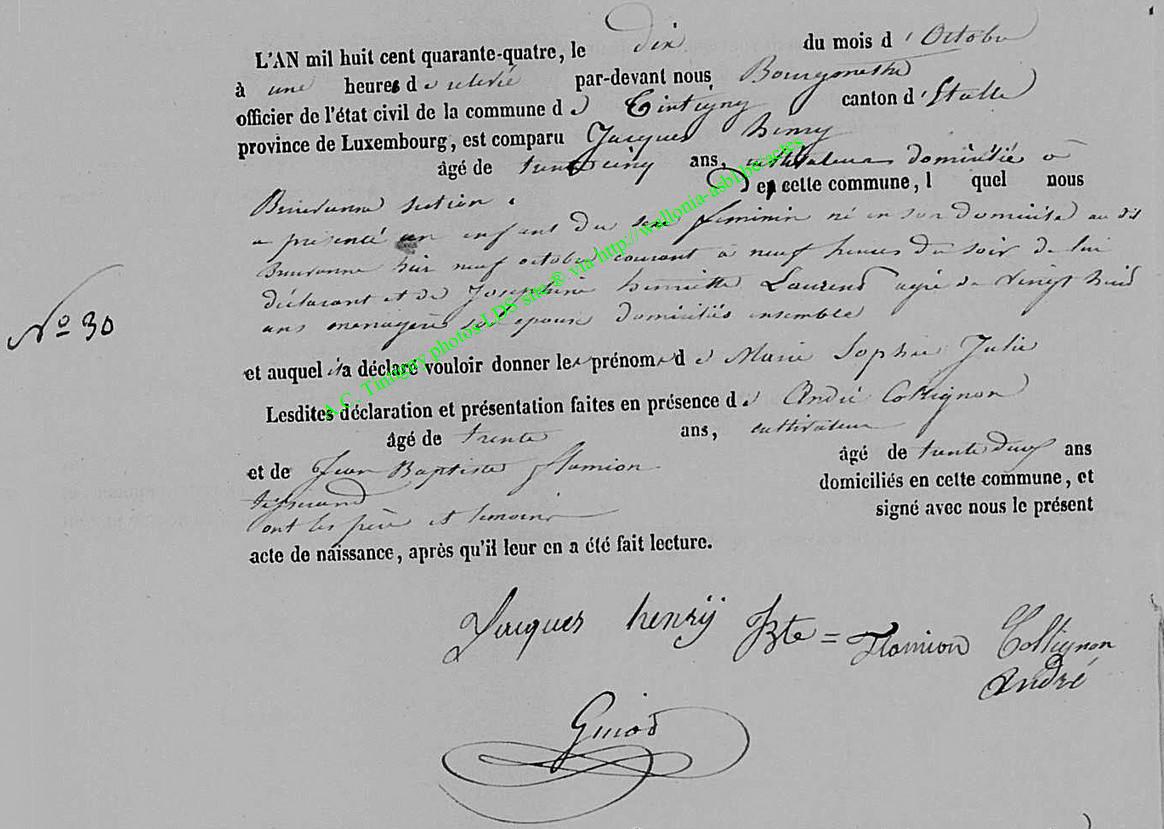 L'AN mil huit cent quarante-quatre, le dix du mois d'Octobre
à une heures de relevé par-devant nous Bourgmestre
officier de l'état civil de la commune de Tintigny canton d'Etalle
province de Luxembourg, est comparu Jacques henry
âgé de trente cinq ans, instituteur domicilié à
section de cette commune, lequel nous
a présenté un enfant du sexe feminin né en son domicile au dit
hier neuf octobre courant à neuf heures du soir de lui
déclarant et de Josephine henriette Laurent agée de vingt huit
ans menagère son epouse domiciliés ensemble
N° 30
et auquel il a déclaré vouloir donner les prénoms de Marie Sophie Julie
Lesdites déclaration et présentation faites en présence de André Collignon
âgé de trente ans, cultivateur
et de Jean Baptiste flamion âgé de trente deux ans
tisserand domiciliés en cette commune, et
ont les père et temoins signé avec nous le présent
acte de naissance, après qu'il leur en a été fait lecture.
Jacques henrÿ Bte = flamion Collignon
André
A.C. Tintigny photos LDS site® via http://wallonia-asbl.be/actes